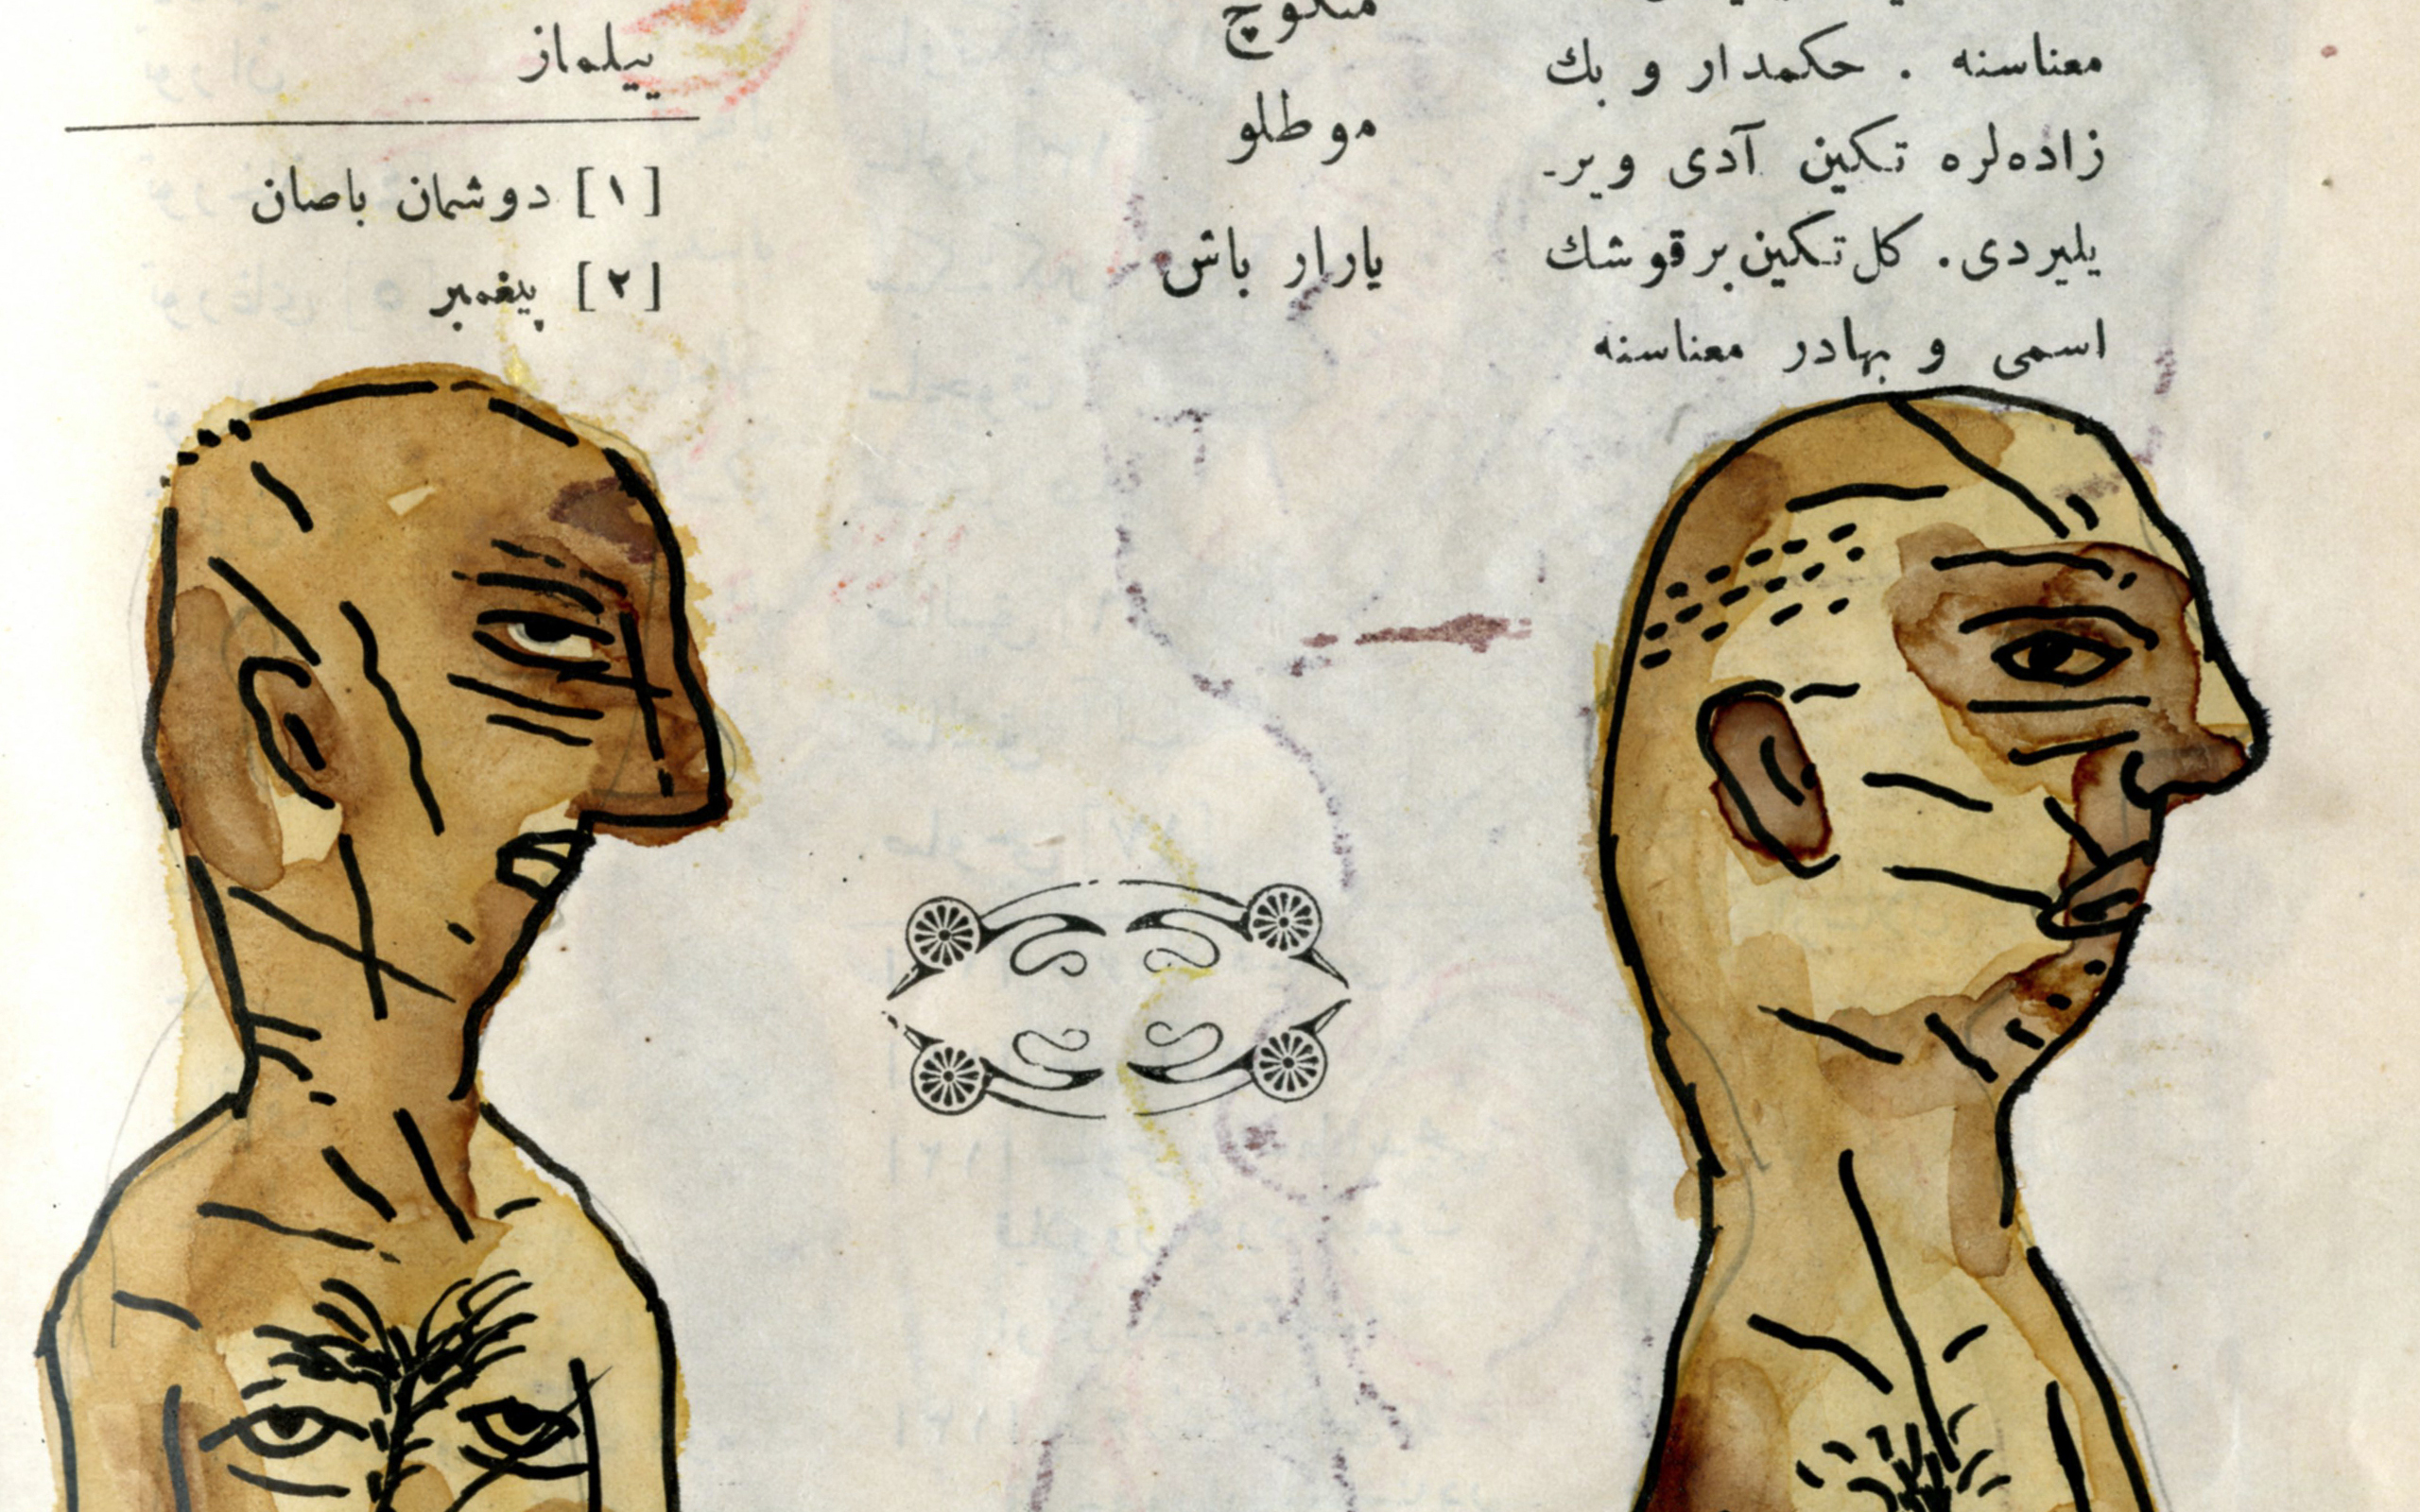 معناسنه . حکمدار و بك
زاده‌لره تکین آدی ویر-
یلیردی . کل تکین بر قوشك
اسمی و بهادر معناسنه
منکوچ
موطلو
یارار باش
ییلماز
[١] دوشمان باصان
[٢] پیغمبر